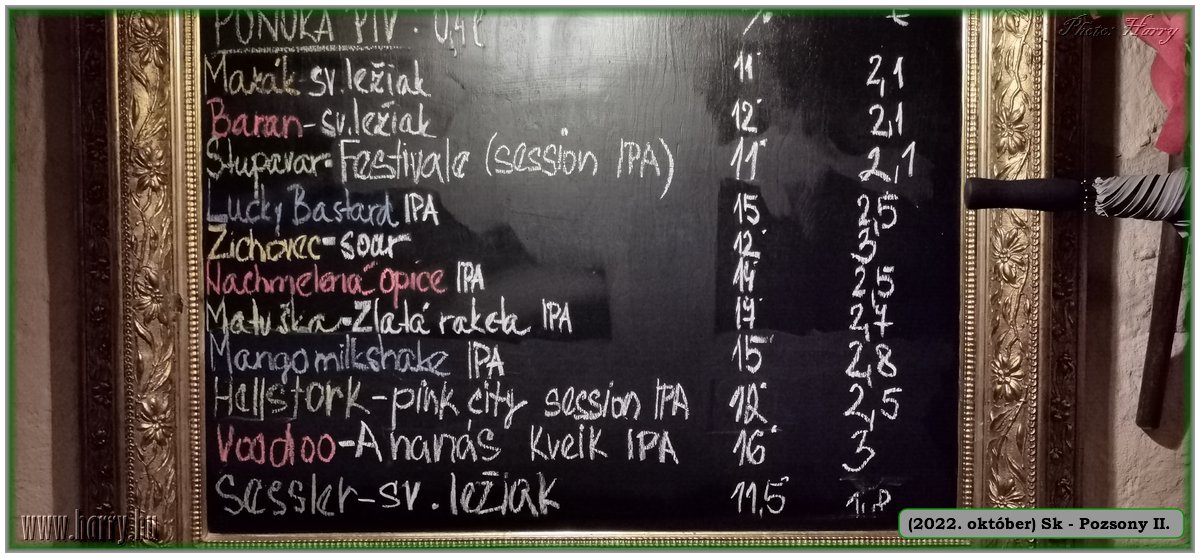 PONUKA PÍV · 0,4l % €
Photo: Harry
Mazák-sv.ležiak 11° 2,1
Baran-sv.ležiak 12° 2,1
Stupavar-Festivale (session IPA) 11° 2,1
Lucky Bastard IPA 15° 2,5
Zichovec-soar 12° 3
Nachmelená opice IPA 14° 2,5
Matuška-Zlatá raketa IPA 17° 2,7
Mangomilkshake IPA 15° 2,8
Hellstork-pink city session IPA 12° 2,5
Voodoo-Ananás Kveik IPA 16° 3
Sessler-sv.ležiak 11,5°
www.harry.hu
(2022. október) Sk - Pozsony II.